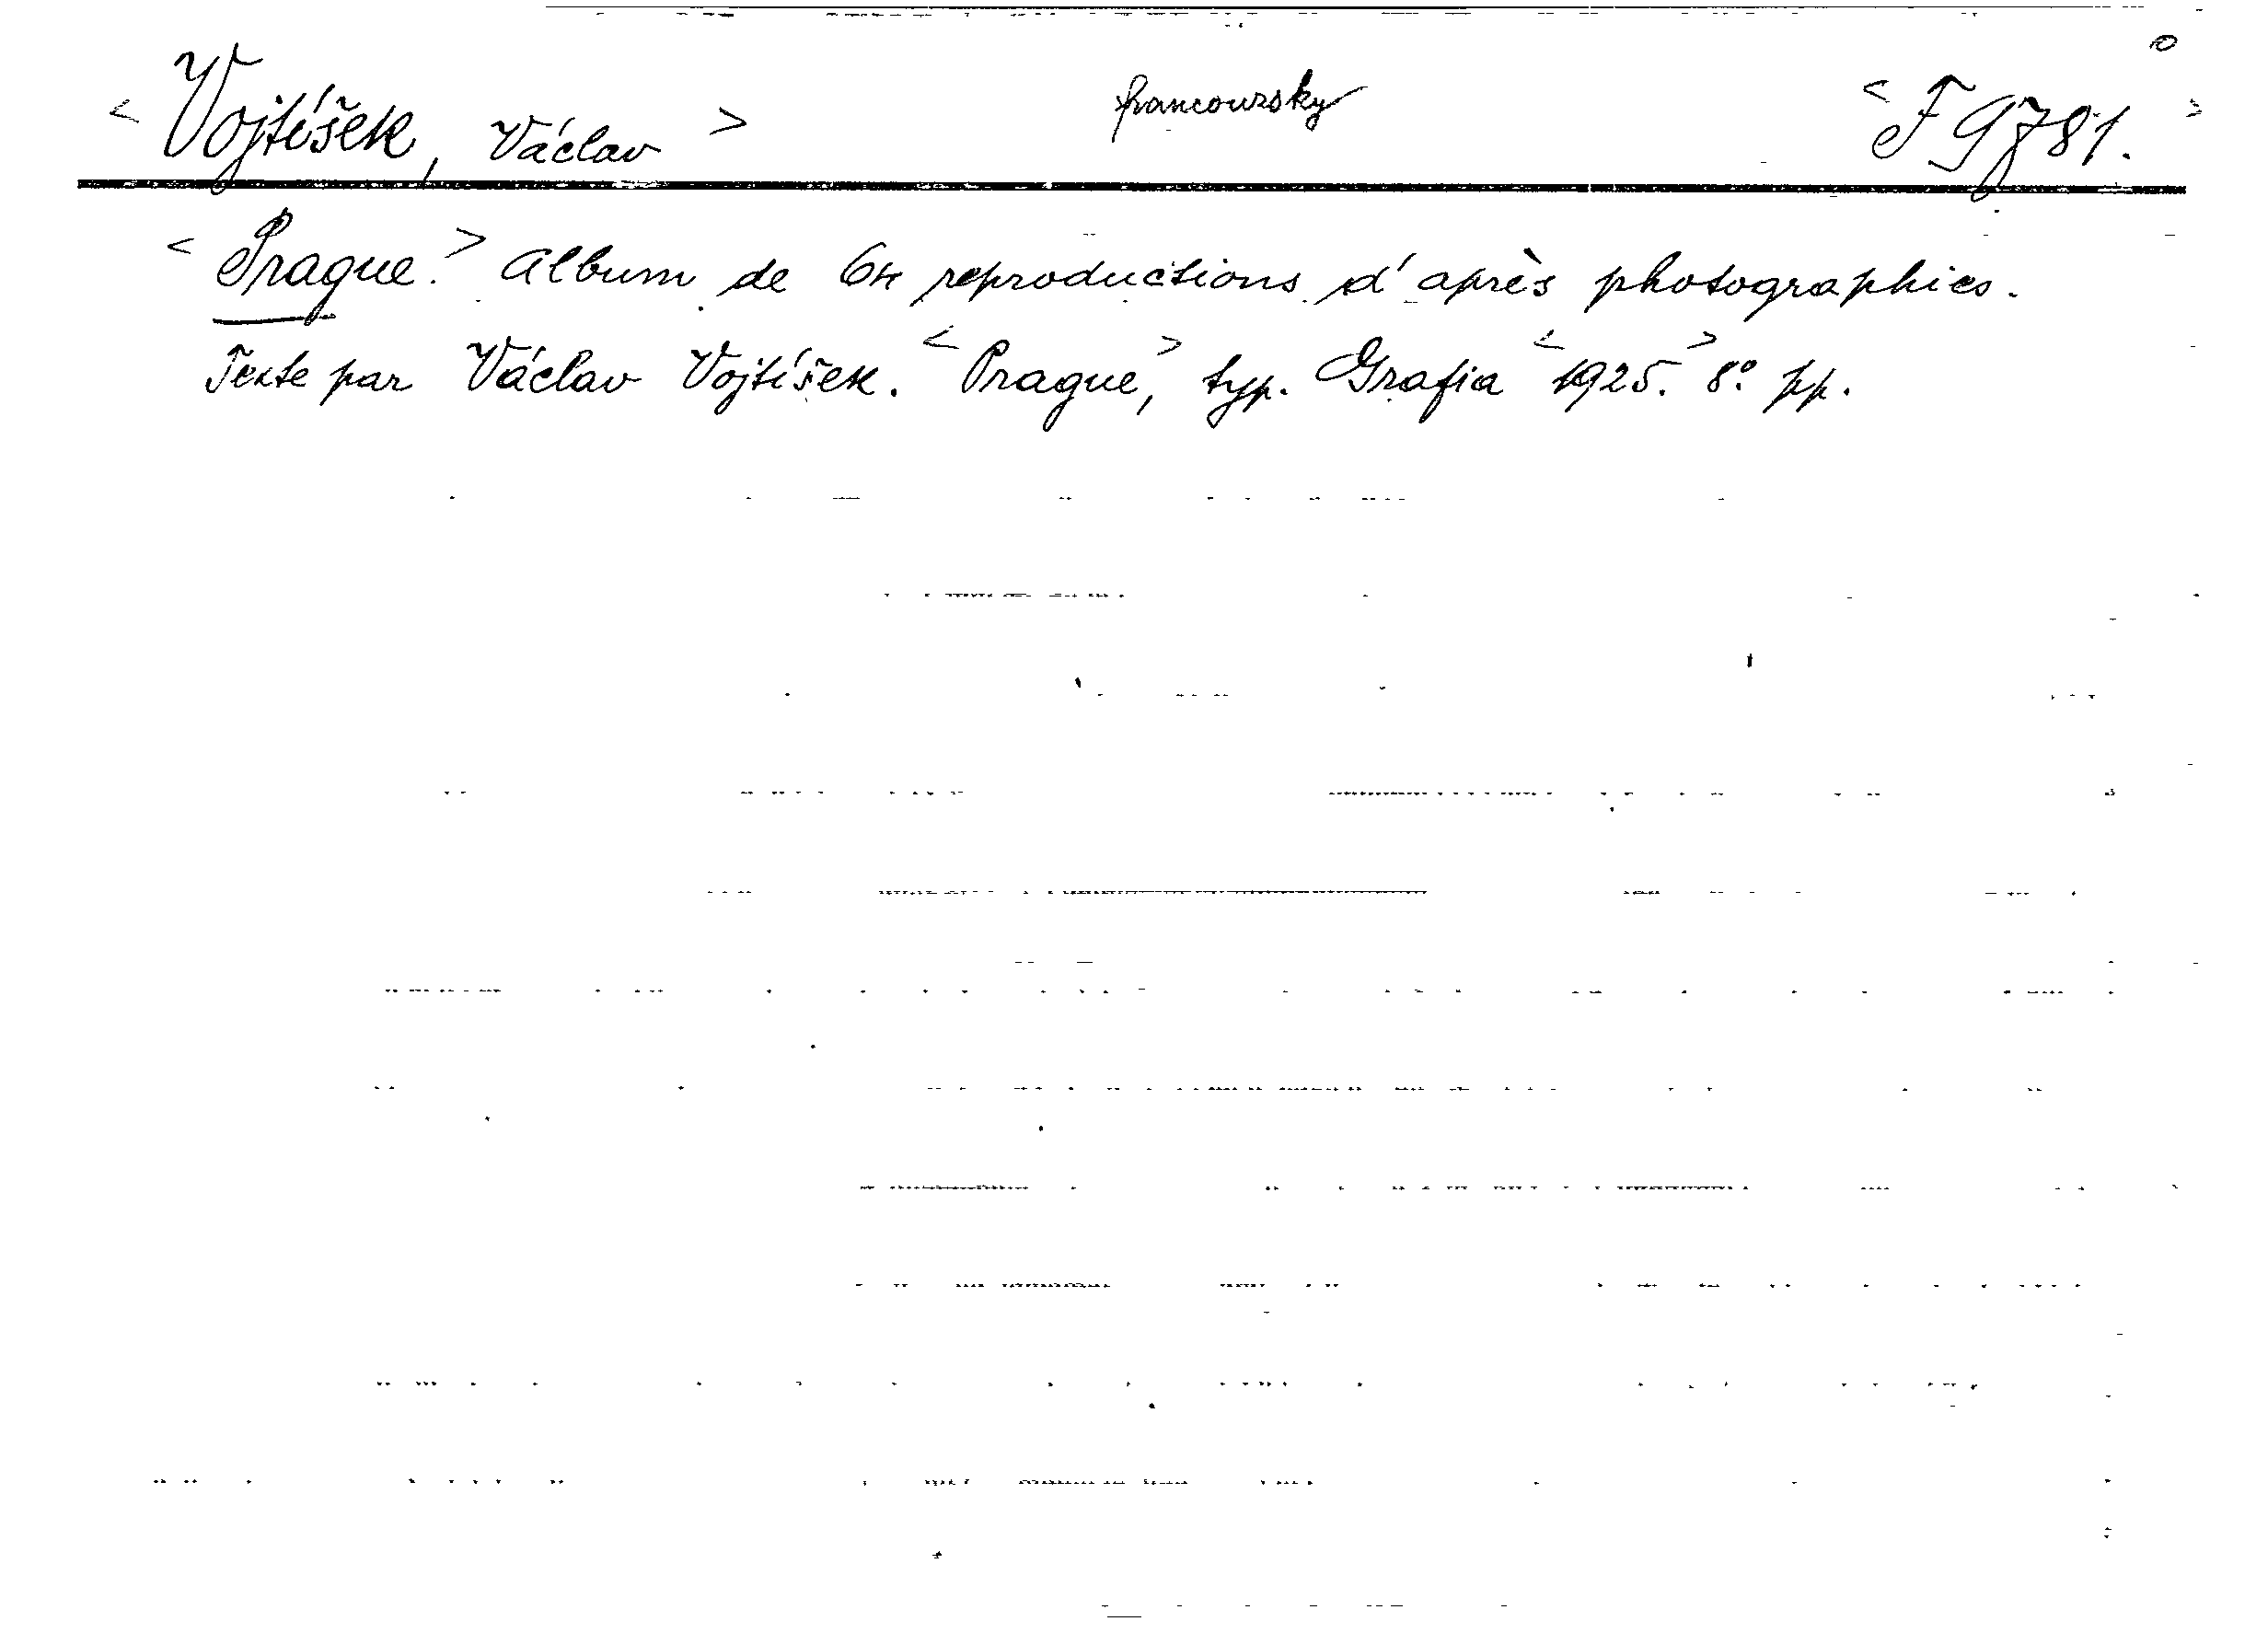 < Vojtíšek, Václav > francouzsky < F 9781. >
< Prague. > Album de 64 reproductions d'après photographies.
Texte par Václav Vojtíšek. < Prague, > typ. Grafia < 1925. > 8° pp.